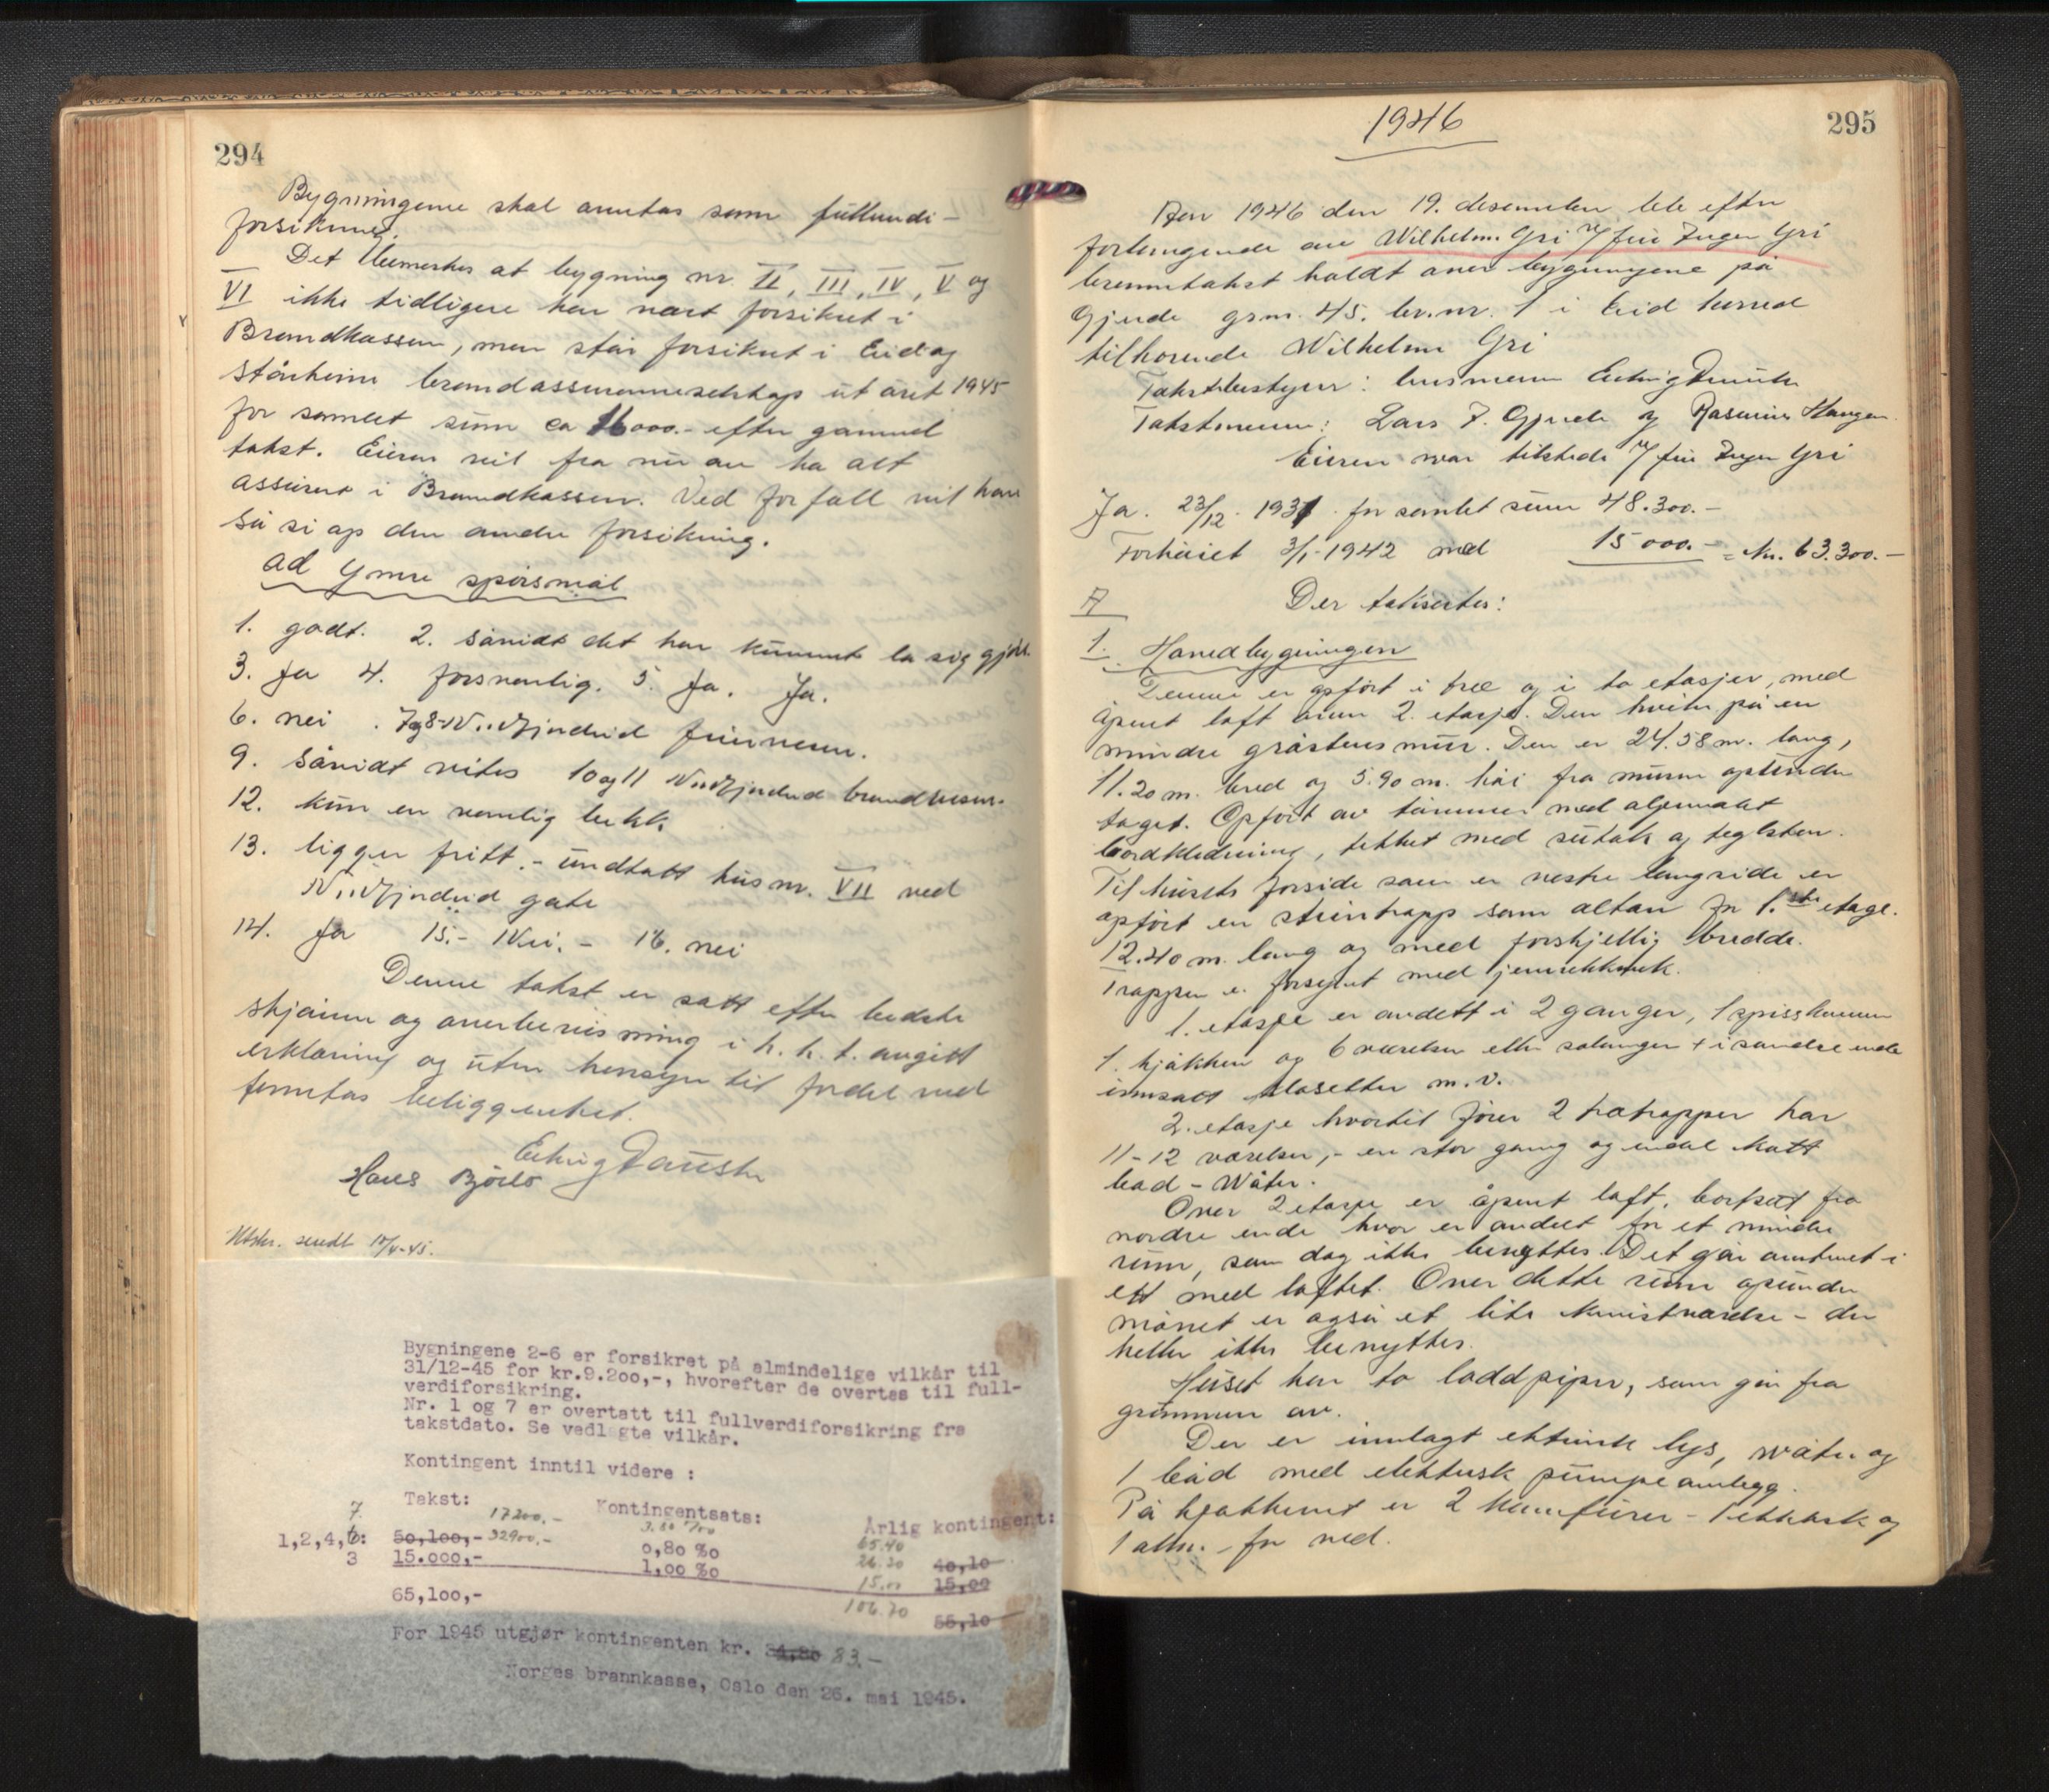 294
Bygningene skal anntas som fullverdi-
forsikring.
Det bemerkes at bygning nr II, III, IV, V og
VI ikke tidligere har vært forsikret i
Brandkassen, men står forsikret i Eid og
Stårheim brandassuranseselskap ut året 1945
for samlet sum ca 16000.- efter gammel
takst. Eieren vil fra nu av ha alt
assurert i Brandkassen. Ved forfall vil han
så si op den andre forsikring.
ad Ymse spørsmål
1. godt. 2. såvidt det har kunnet la sig gjøre
3. Ja 4. forsvarlig. 5. Ja. Ja.
6. nei . 7og8-
9. såvidt vites 10 og 11
12. kun en vanlig bekk
13. ligger fritt.- undtatt hus nr. VII ved
gate
14. Ja 15.- Nei. - 16. nei
Denne takst er satt efter bedste
skjønn og overbevisning i h. h. t. avgitt
erklæring og uten hensyn til fordel ved
tomtas beliggenhet.
Hans Bjørlo
Utskr. sendt
Bygningene 2-6 er forsikret på almindelige vilkår til
31/12-45 for kr.9.200,-, hvorefter de overtas til full-
verdiforsikring.
Nr. 1 og 7 er overtatt til fullverdiforsikring fra
takstdato. Se vedlagte vilkår.
Kontingent inntil videre :
Takst: Kontingentsats: Årlig kontingent:
7. 17200.- 65.40
1,2,4,6: 50,100,- 32900.- 0,80 ‰ 26.30 40,10
3 15.000,- 1,00 ‰ 15.00 15,00
65,100,- 106.70 55,10
For 1945 utgjør kontingenten kr. 83.-
Norges brannkasse, Oslo den 26. mai 1945.
1946
295
Aar 1946 den 19. desember ble efter
forlangende av Wilhelm Gri v/ fru Inger Gri
branntakst holdt over bygningene på
Gjerde grsnr. 45. br.nr. 1 i Eid herred
tilhørende Wilhelm Gri
Takstbestyrer:
Takstmenn: Lars J. Gjerde og Rasmus Haugen.
Eieren var tilstede v/ fru Inger Gri
Ja. 23/12. 1931. for samlet sum 48.300.-
Forhøiet 3/1-1942 med 15000.- = Kr. 63.300.-
A Der takseres:
1. Hovedbygningen
Denne er opført i tre og i to etasjer, med
åpent loft over 2. etasje. Den hviler på en
mindre gråstensmur. Den er 24.58 m. lang,
11.20 m. bred og 5.90 m. høi fra muren op under
taget. Opført av tømmer med
bordkledning, tekket med sutak og teglsten.
Til husets forside som er vestre langside er
opført en steintrapp som altan for 1.ste etage.
12.40 m. lang og med forskjellig bredde.
Trappen er forsynt med jernrekkverk.
1. etasje er avdelt i 2 ganger, 1 spisskammer
1. kjøkken og 6 værelser eller salonger + i søndre ende
innsatt klosetter m.v.
2. etasje hvortil fører 2 tretrapper har
11-12 værelser,- en stor gang og
bad - Water.
Over 2 etasje er åpent loft, bortsett fra
nordre ende hvor er avdelt for et mindre
rum, som dog ikke benyttes. Det går omtrent i
ett med loftet. Over dette rum op under
mønet er også et lite kvistværelse - der
heller ikke benyttes.
Huset har to loddpiper, som går fra
grunnen av.
Der er innlagt elektrisk lys, water og
1 bad med elektrisk pumpeanlegg.
På kjøkkenet er 2 komfürer - 1 elektrisk og
1 alm. - for ved.